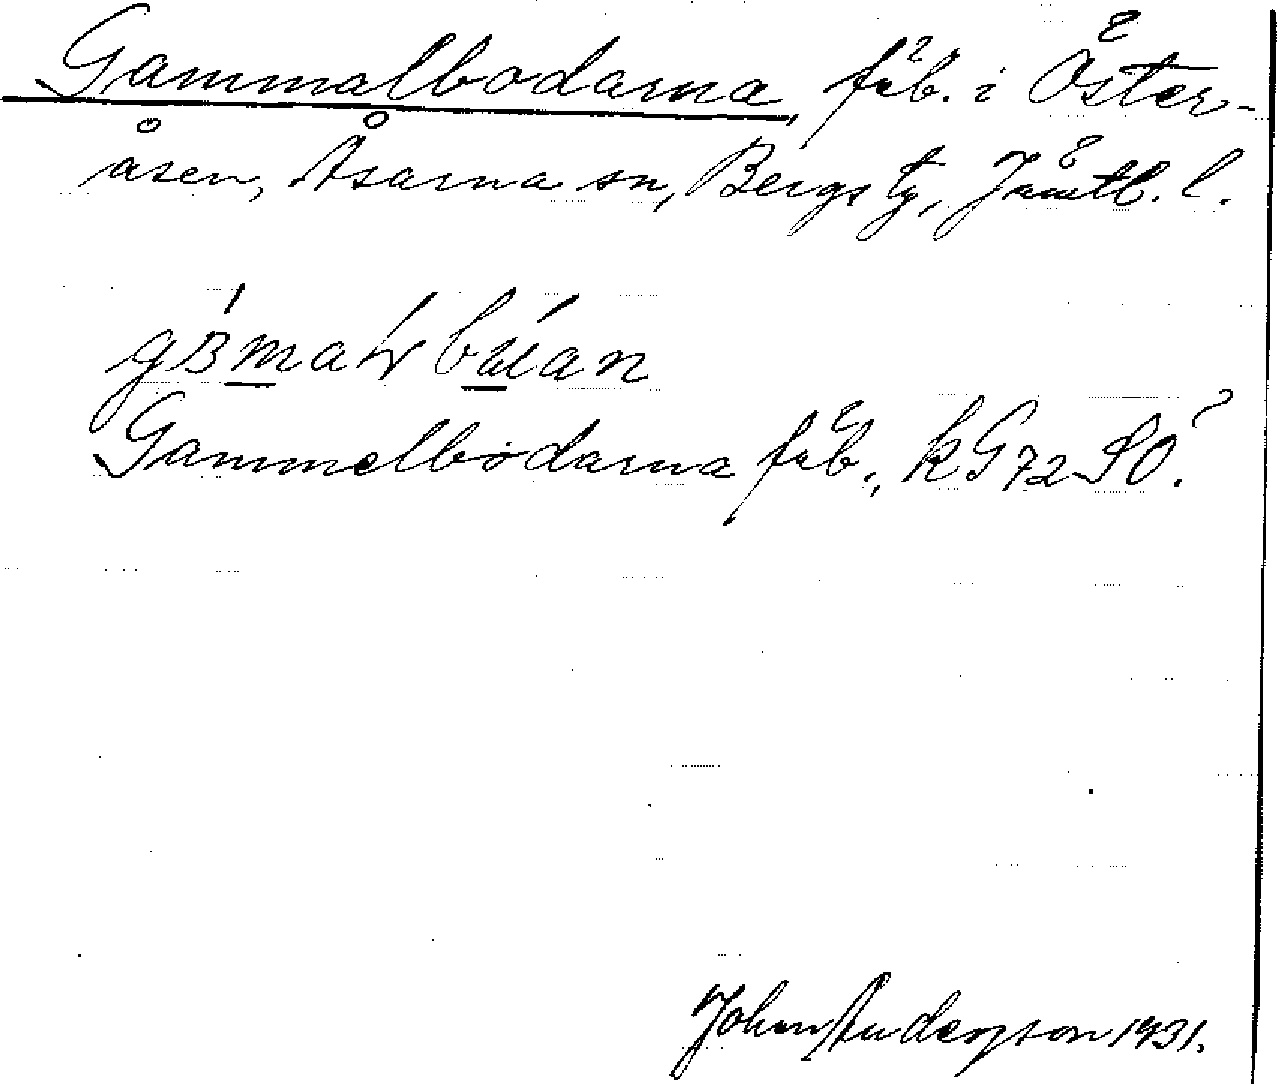 Gammalbodarna, fäb. i Öster-
åsen, Åsarna sn, Bergs tg, Jämtl. l.
Gammelbodarna fäb., kG72SO.
John Anderson 1931.